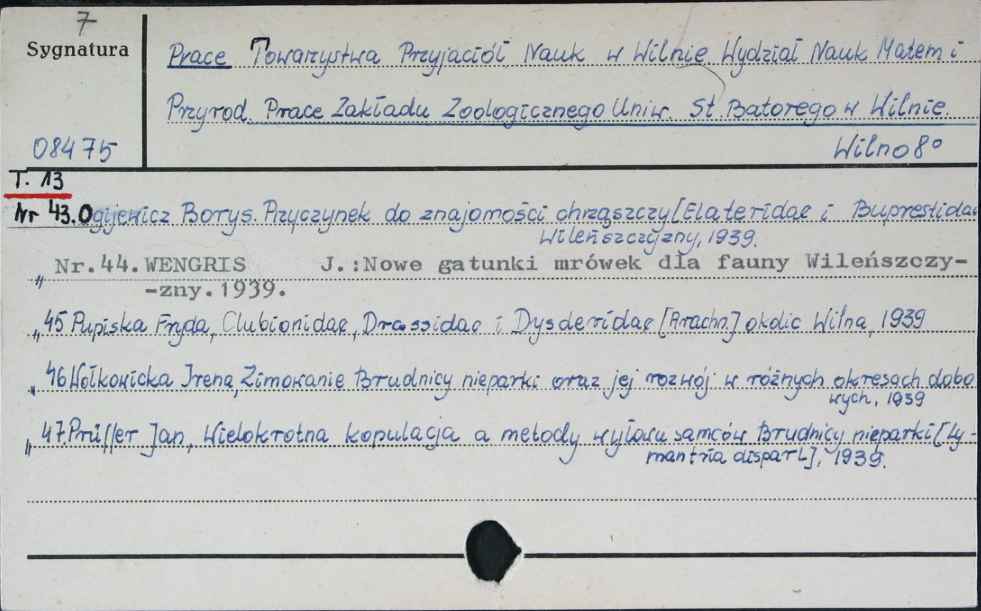 7
Sygnatura
08475
Prace Towarzystwa Przyjaciół Nauk w Wilnie. Wydział Nauk Matem i
Przyrod. Prace Zakładu Zoologicznego Uniw. St. Batorego w Wilnie.
Wilno 8°
T. 13
Nr 43. Ogijewicz Borys. Przyczynek do znajomości chrząszczy [Elateridae i Buprestidae
Wileńszczyzny, 1939.
" Nr.44. WENGRIS J.: Nowe gatunki mrówek dła fauny Wileńszczy-
-zny. 1939.
" 45 Pupiska Fryda, Clubionidae, Drassidae i Dysderidae [Arachn.] okolic Wilna, 1939
" 46 Wołkowicka Irena, Zimowanie Brudnicy nieparki oraz jej rozwój w różnych okresach dobo
wych, 1939
" 47. Prüffer Jan, Wielokrotna kopulacja a metody wyłowu samców Brudnicy nieparki [Ly-
mantria dispar L], 1939.